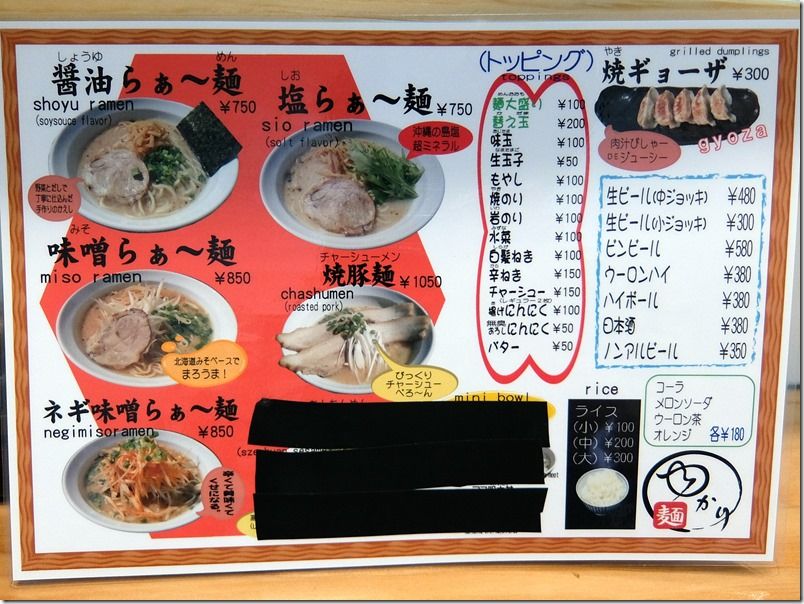 しょうゆ めん
醤油らぁ〜麺
shoyu ramen ¥750
(soysouce flavor)
野菜とだしで
丁寧に仕込んだ
手作りのかえし
しお
塩らぁ〜麺 ¥750
sio ramen
(solt flavor)
沖縄の島塩
超ミネラル
みそ
味噌らぁ〜麺
miso ramen ¥850
北海道みそベースで
まろうま!
チャーシューメン
焼豚麺 ¥1050
chashumen
(roasted pork)
びっくり
チャーシュー
ぺろ〜ん
ネギ味噌らぁ〜麺
negimisoramen ¥850
(トッピング)
toppings
麺大盛り ¥100
替え玉 ¥200
味玉 ¥100
生玉子 ¥50
もやし ¥100
焼のり ¥100
岩のり ¥100
水菜 ¥100
白髪ねぎ ¥100
辛ねぎ ¥150
チャーシュー ¥150
(レギュラー2枚)
揚げにんにく ¥100
無臭
おろしにんにく ¥50
バター ¥50
mini bowl
やき grilled dumplings
焼ギョーザ ¥300
肉汁ぴしゃー
DEジューシー
gyoza
生ビール(中ジョッキ) ¥480
生ビール(小ジョッキ) ¥300
ビンビール ¥580
ウーロンハイ ¥380
ハイボール ¥380
日本酒 ¥380
ノンアルビール ¥350
rice
ライス
(小) ¥100
(中) ¥200
(大) ¥300
コーラ
メロンソーダ
ウーロン茶
オレンジ 各¥180
麺